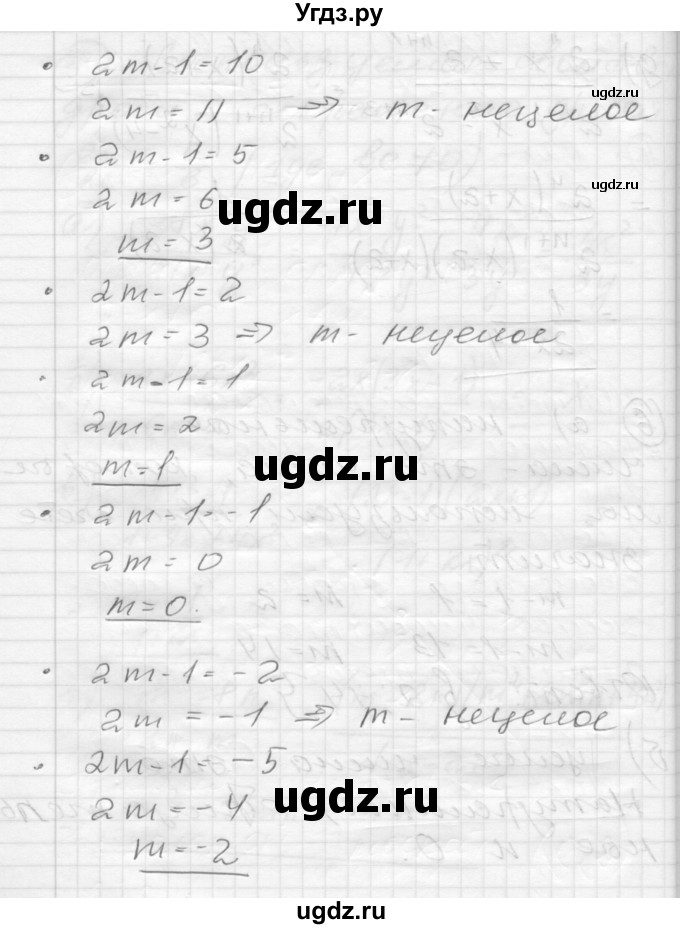 Угдз.ру
• 2m-1=10
ugdz.ru
2m = 11 => m - нецелое
• 2m-1=5
ugdz.ru
2m = 6
ugdz.ru
m = 3
• 2m-1=2
2m = 3 => m - нецелое
• 2m-1=1
2m = 2
ugdz.ru
m=1
• 2m-1=-1
2m = 0
m=0.
• 2m-1=-2
2m = -1 => m - нецелое
• 2m-1=-5
ugdz.ru
2m = -4
m=-2
ugdz.ru